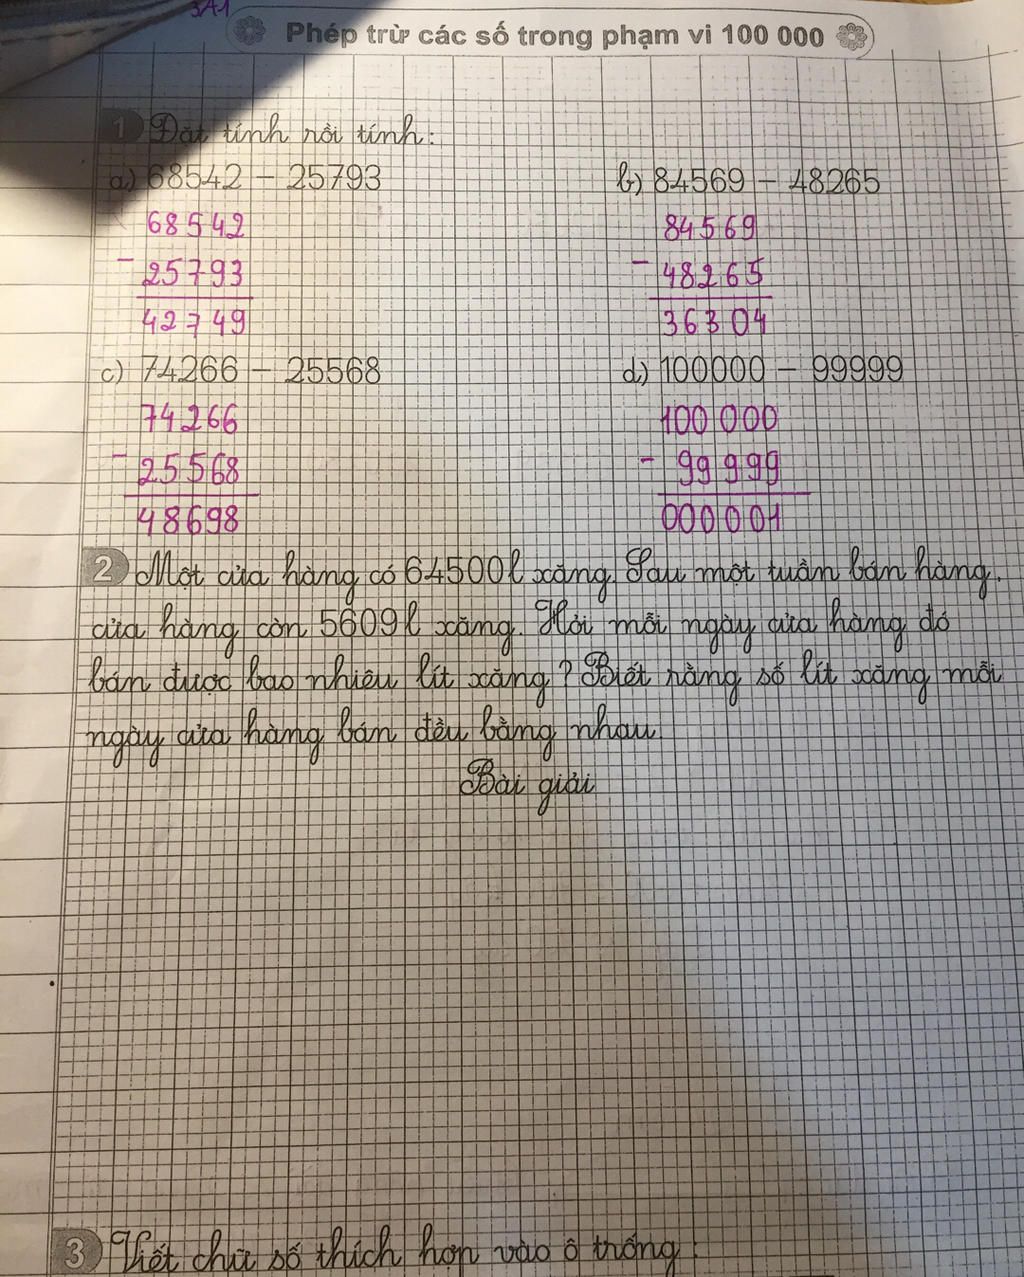 3A1
Phép trừ các số trong phạm vi 100 000
1 Đặt tính rồi tính:
a) 68542 - 25793 b) 84569 - 48265
68542 84569
- 25793 - 48265
42749 36304
c) 74266 - 25568 d) 100000 - 99999
74266 100000
- 25568 - 99999
48698 000001
2 Một cửa hàng có 64500l xăng. Sau một tuần bán hàng,
cửa hàng còn 5609l xăng. Hỏi mỗi ngày cửa hàng đó
bán được bao nhiêu lít xăng? Biết rằng số lít xăng mỗi
ngày cửa hàng bán đều bằng nhau.
Bài giải
3 Viết chữ số thích hợp vào ô trống: